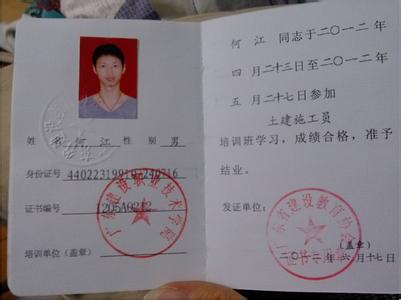 姓名 何江 性别 男
身份证号
证书编号 1205A0212
培训单位（盖章）
广东建设职业技术学院
何江 同志于二〇一二年
四月二十三日至二〇一二年
五月二十七日参加
土建施工员
培训班学习，成绩合格，准予
结业。
发证单位：
广东省建设教育协会
证书专用章
（盖章）
二〇一二年六月十七日